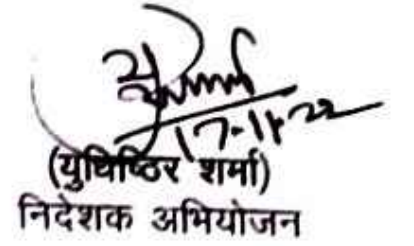 17-11-22
(युधिष्ठिर शर्मा)
निदेशक अभियोजन